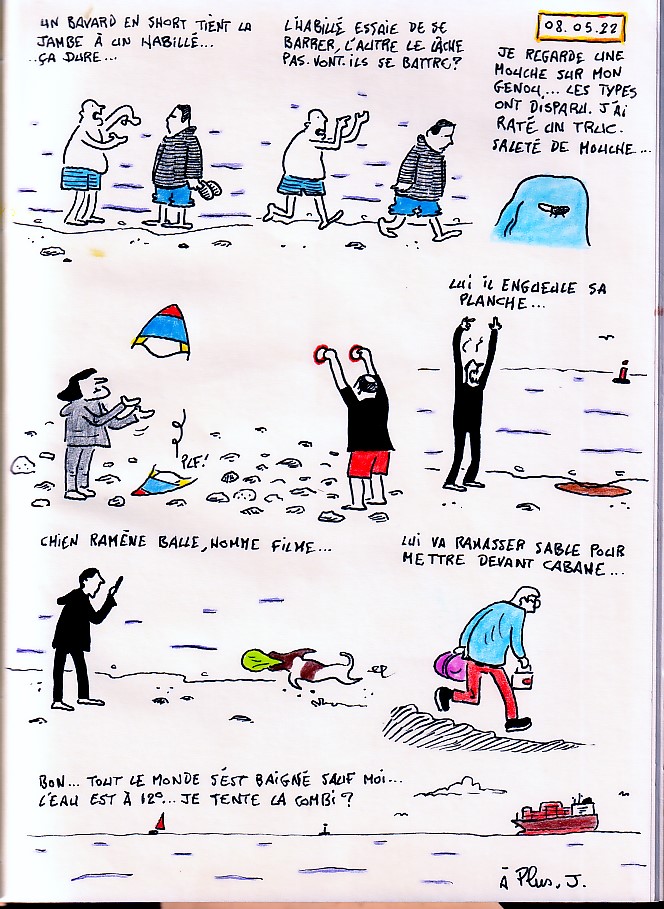 UN BAVARD EN SHORT TIENT LA
JAMBE À UN HABILLÉ...
..ÇA DURE...
L'HABILLÉ ESSAIE DE SE
BARRER, L'AUTRE LE LÂCHE
PAS. VONT.ILS SE BATTRE?
08.05.22
JE REGARDE UNE
MOUCHE SUR MON
GENOU... LES TYPES
ONT DISPARU. J'AI
RATÉ UN TRUC.
SALETÉ DE MOUCHE...
PLF!
LUI IL ENGUEULE SA
PLANCHE...
CHIEN RAMÈNE BALLE, HOMME FILME...
LUI VA RAMASSER SABLE POUR
METTRE DEVANT CABANE...
BON... TOUT LE MONDE S'EST BAIGNÉ SAUF MOI...
L'EAU EST À 12°... JE TENTE LA COMBI?
À Plus, J.